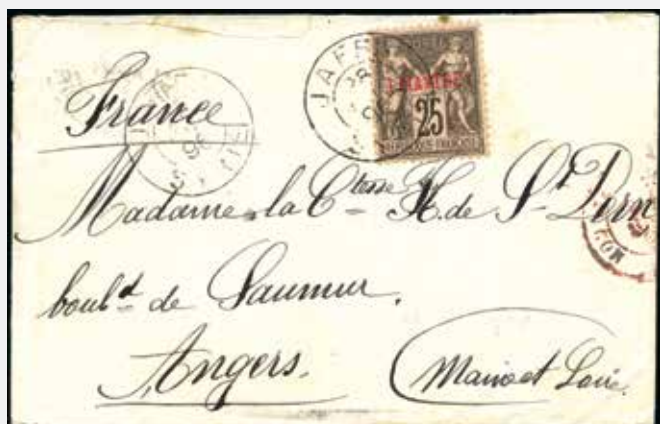 JAFF
1 PIASTRE
25
REPUBLIQUE FRANCAISE
France
Madame la Ctesse H. de St Pern
bould de Saumur.
Angers.
Maine et Loire